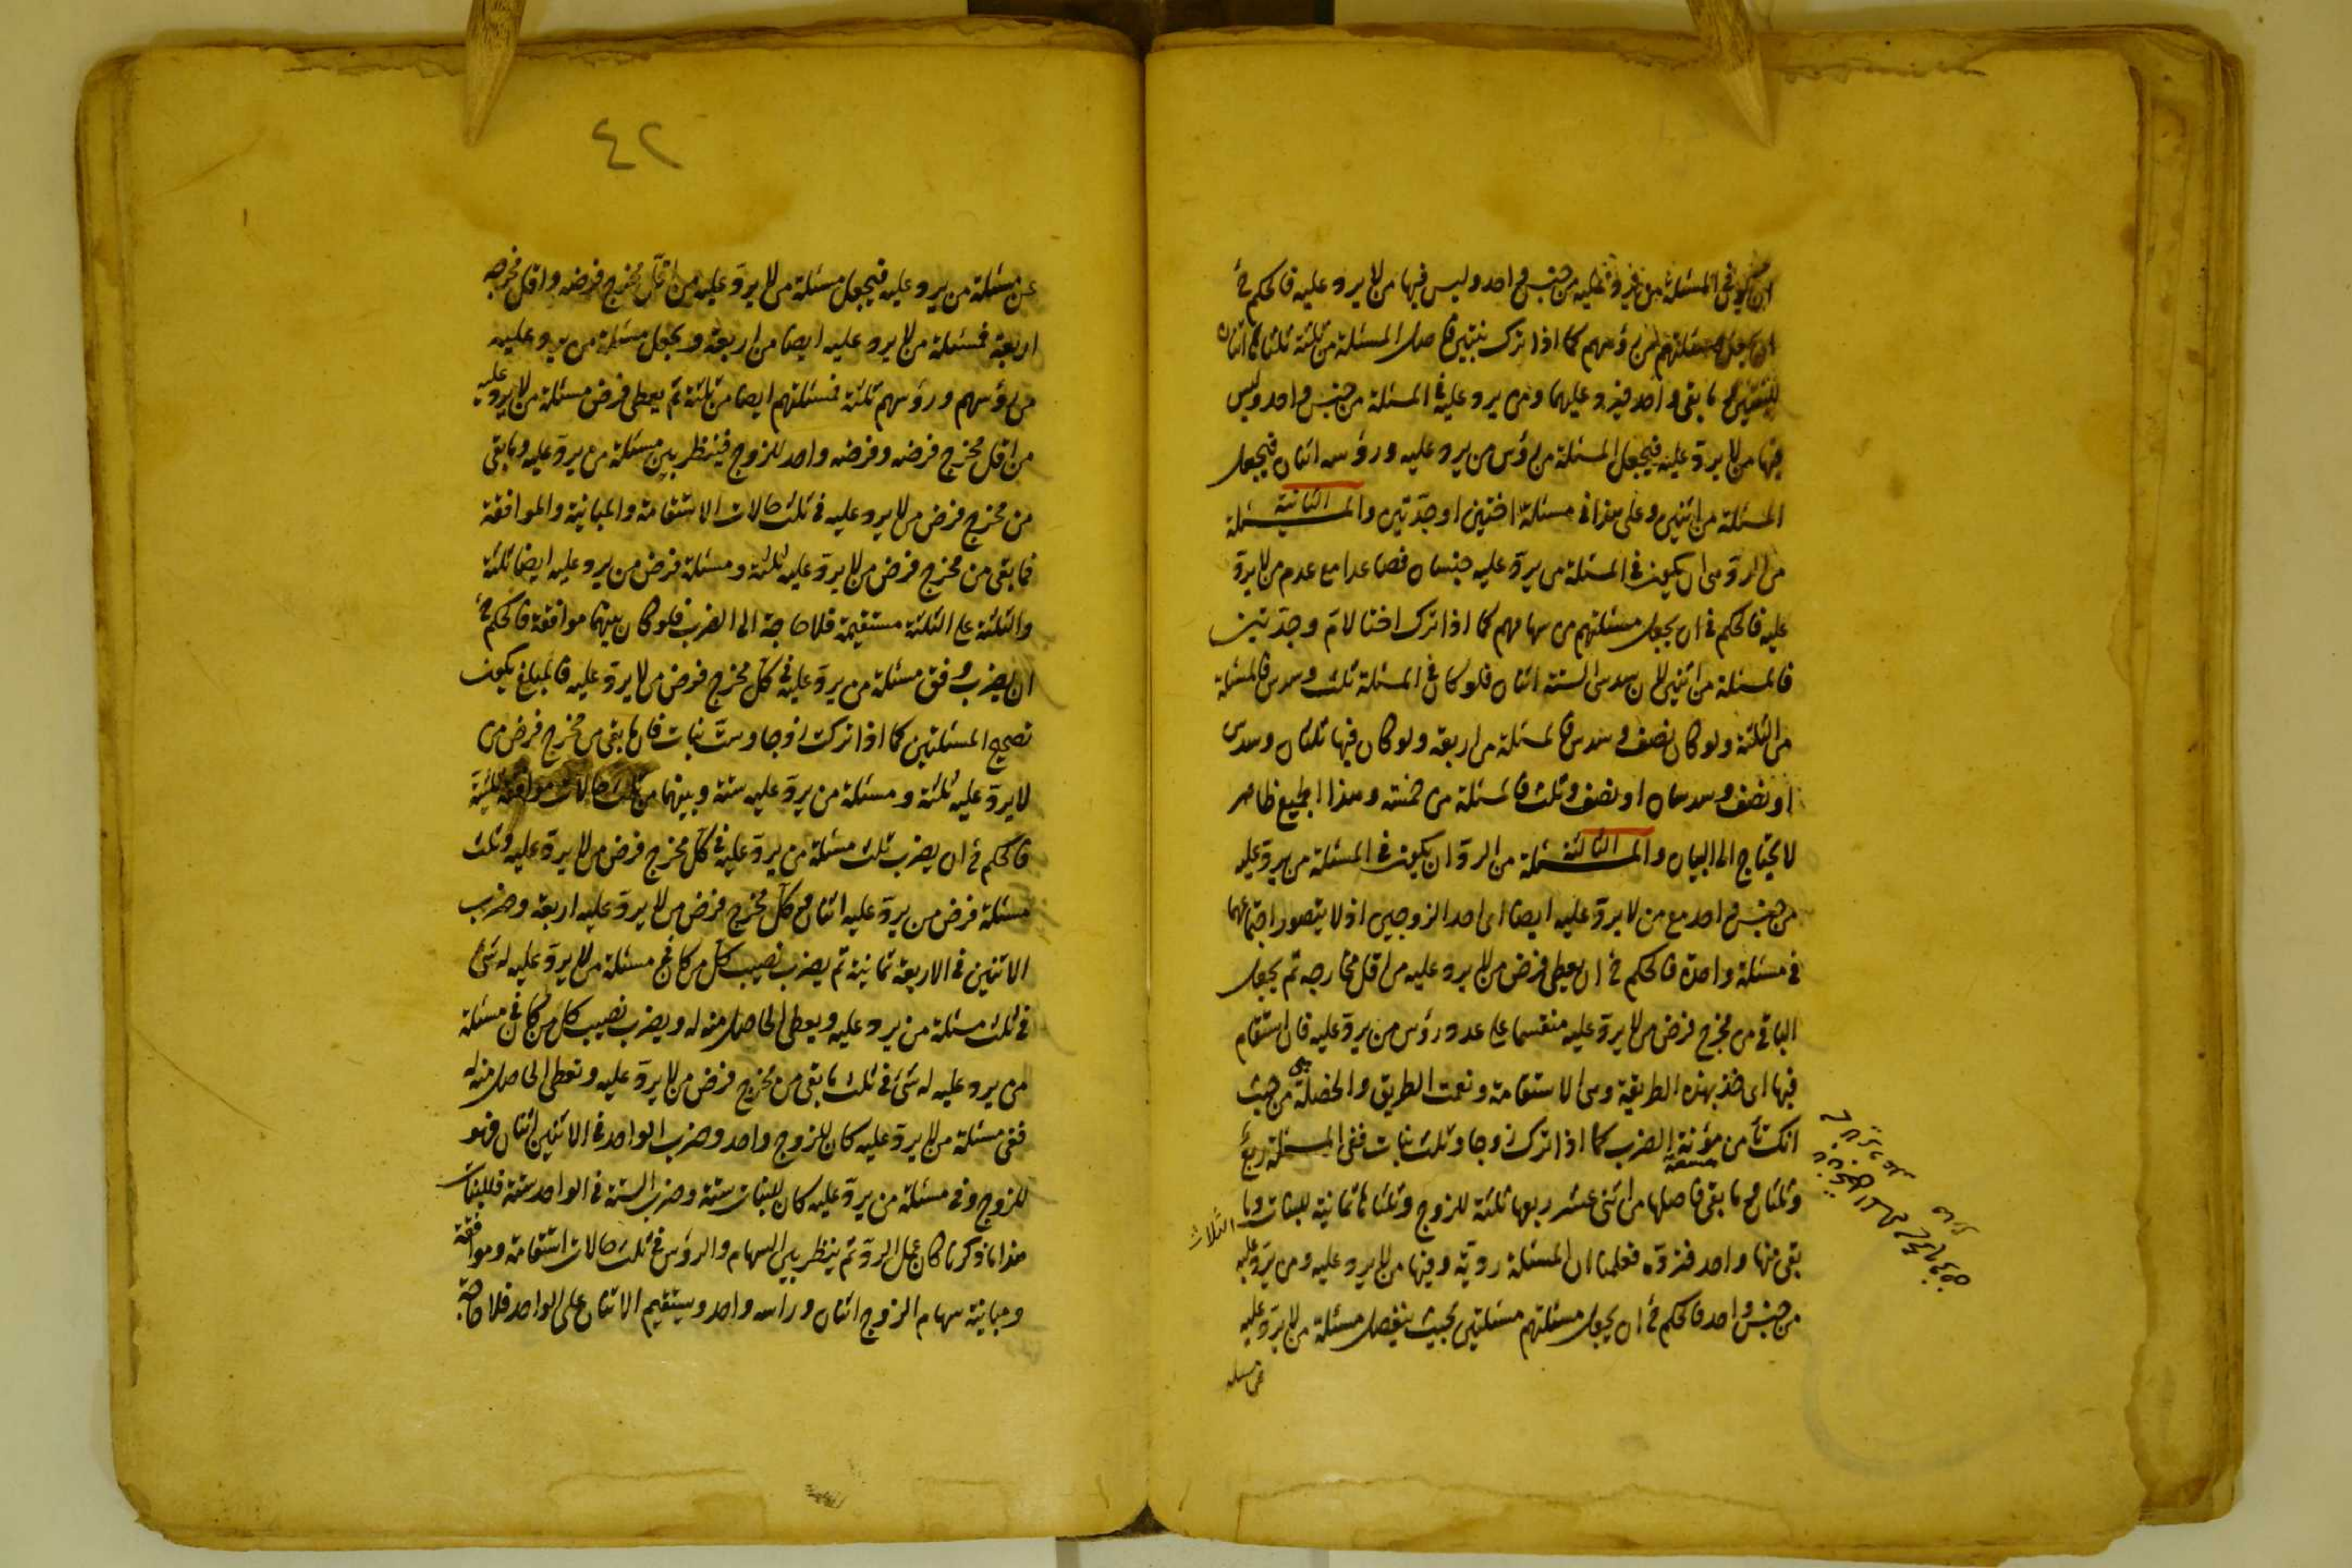 ان يكون فى المسئلة من يرد عليه من جنس واحد وليس فيها من لا يرد عليه فالحكم فى
ان يجعل مسئلتهم من رؤسهم كما اذا ترك بنتين فاصل المسئلة من ثلثة ثلثاها اثنان
للبنتين وما بقى واحد فيرد عليهما ومن يرد عليه فى المسئلة من جنس واحد وليس
فيها من لا يردّ عليه فيجعل المسئلة من رؤس من يرد عليه ورؤسه اثنان فيجعل
المسئلة من اثنين وعلى هذا فى مسئلة اختين او جدّتين والمسئلة الثانية
من الردّ هى ان يكون فى المسئلة من يردّ عليه جنسان فصاعدا مع عدم من لا يردّ
عليه فالحكم فى ان يجعل مسئلتهم من سهامهم كما اذا ترك اختا لامّ وجدّتين
فالمسئلة من اثنين لان سدس الستة اثنان فلو كان فى المسئلة ثلث وسدس فالمسئلة
من الثلثة ولو كان نصف وسدس فالمسئلة من اربعة ولو كان فيها ثلثان وسدس
او نصف وسدسان او نصف وثلث فالمسئلة من خمسة وهذا الجميع ظاهر
لا يحتاج الى البيان والمسئلة الثالثة من الردّ ان يكون فى المسئلة من يردّ عليه
من جنس واحد مع من لا يردّ عليه ايضا اى احد الزوجين اذ لا يتصور اجتماعهما
فى مسئلة واحدة فالحكم فى ان يعطى فرض من لا يرد عليه من اقل مخارجه ثم يجعل
الباقى من مخرج فرض من لا يردّ عليه منقسما على عدد رؤس من يردّ عليه فان استقام
فيها اى خذ بهذه الطريقة وهى الاستقامة ونعمت الطريق والخصلة هى من حيث
انك تأمن مؤنة الضرب كما اذا ترك زوجا وثلث بنات ففى المسئلة ربع
وثلثان مع ما بقى فاصلها من اثنى عشر ربعها ثلثة للزوج وثلثاها ثمانية للبنات وما
الثلاث
بقى منها واحد فنردّه فعلمنا ان المسئلة ردّية وفيها من لا يرد عليه ومن يردّ عليه
من جنس واحد فالحكم فى ان يجعل مسئلتهم مسئلتين بحيث ينفصل مسئلة من لا يردّ عليه
عن مسئلة
٤٢
عن مسئلة من يرد عليه فيجعل مسئلة من لا يردّ عليه من اقلّ مخرج فرضه واقل مخرجه
اربعة فمسئلة من لا يرد عليه ايضا من اربعة ويجعل مسئلة من يرد عليه
من رؤسهم ورؤسهم ثلثة فمسئلتهم ايضا من ثلثة ثم يعطى فرض مسئلة من لا يرد عليه
من اقل مخرج فرضه وفرضه واحد للزوج فينظر بين مسئلة من يردّ عليه وما بقى
من مخرج فرض من لا يرد عليه فى ثلث حالات الاستقامة والمباينة والموافقة
فما بقى من مخرج فرض من لا يردّ عليه ثلثة ومسئلة فرض من يرد عليه ايضا ثلثة
والثلثة على الثلثة مستقيمة فلا حاجة الى الضرب فلو كان بينهما موافقة فالحكم فى
ان يضرب وفق مسئلة من يردّ عليه فى كلّ مخرج فرض من لا يردّ عليه فالمبلغ يكون
تصحيح المسئلتين كما اذا تركت زوجا وستّ بنات فان ما بقى من مخرج فرض من
لا يردّ عليه ثلثة ومسئلة من يردّ عليه ستة وبينهما من ثلث حالات موافقة ثلثيّة
فالحكم فى ان يضرب ثلث مسئلة من يردّ عليه فى كلّ مخرج فرض من لا يردّ عليه وثلث
مسئلة فرض من يردّ عليه اثنان مع كلّ مخرج فرض من لا يردّ عليه اربعة وضرب
الاثنين فى الاربعة ثمانية ثم يضرب نصيب كلّ من كان فى مسئلة من لا يردّ عليه له شئ
فى ثلث مسئلة من يرد عليه ويعطى الحاصل منه له ويضرب نصيب كل من كان فى مسئلة
من يرد عليه له شئ فى ثلث ما بقى من مخرج فرض من لا يردّ عليه وتعطى الحاصل منه له
ففى مسئلة من لا يردّ عليه كان للزوج واحد وضرب الواحد فى الاثنين اثنان فهو
للزوج وفى مسئلة من يردّ عليه كان للبنات ستة وضرب الستة فى الواحد ستة فللبنات
هذا ما ذكرنا كان عمل الردّ ثم ينظر بين السهام والرؤس فى ثلث حالات استقامة وموافقة
ومباينة سهام الزوج اثنان وراسه واحد ويستقيم الاثنان على الواحد فلا حاجة